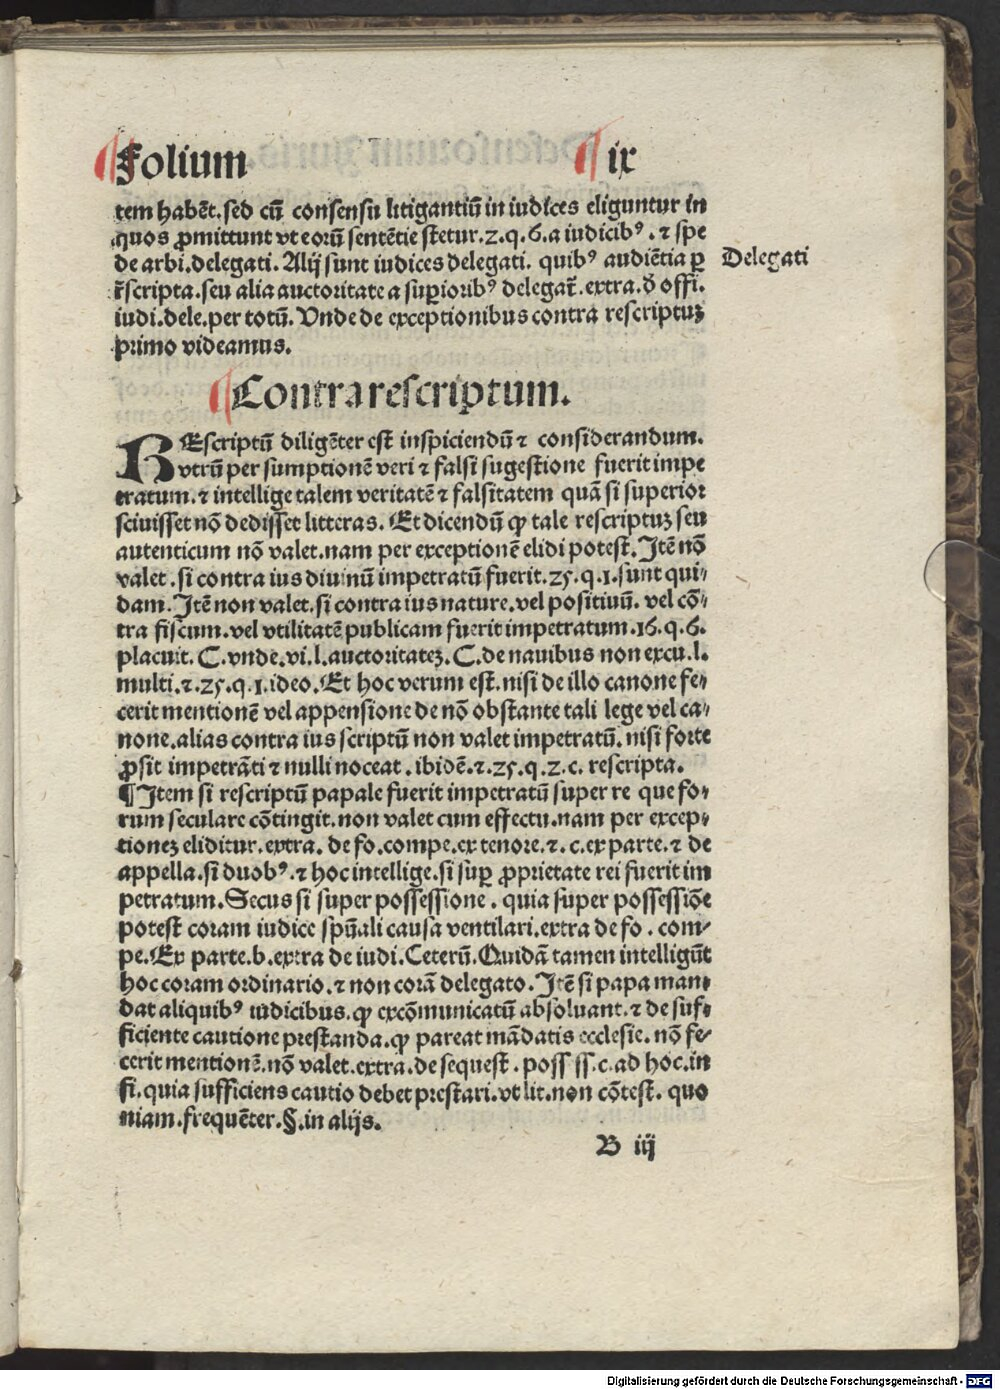 ¶ Folium ¶ ix
tem habēt. sed cū consensu litigantiū in iudices eliguntur in
quos ꝓmittunt vt eorū sentētie stetur. 2. q. 6. a iudicibꝰ. ⁊ spe
de arbi. delegati. Alij sunt iudices delegati. quibꝰ audiētia ꝑ
Delegati
r̄scripta. seu alia auctoritate a suꝑioribꝰ delegat̄. extra. d̄ offi.
iudi. dele. per totū. Unde de exceptionibus contra rescriptuꝫ
primo videamus.
¶ Contra rescriptum.
REscriptū diligēter est inspiciendū ⁊ considerandum.
vtrū per sumptionē veri ⁊ falsi sugestione fuerit impe
tratum. ⁊ intellige talem veritatē ⁊ falsitatem quā si superior
sciuisset nō dedisset litteras. Et dicendū ꝙ tale rescriptuꝫ seu
autenticum nō valet. nam per exceptionē elidi potest. Itē nō
valet. si contra ius diuinū impetratū fuerit. 25. q. 1. sunt qui⸗
dam. Itē non valet. si contra ius nature. vel positiuū. vel cō⸗
tra fiscum. vel vtilitatē publicam fuerit impetratum. 16. q. 6.
placuit. C. vnde. vi. l. auctoritateꝫ. C. de nauibus non excu. l.
multi. ⁊. 25. q. 1. ideo. Et hoc verum est. nisi de illo canone fe⸗
cerit mentionē vel appensione de nō obstante tali lege vel ca⸗
none. alias contra ius scriptū non valet impetratū. nisi forte
ꝓsit impetrāti ⁊ nulli noceat. ibidē. ⁊. 25. q. 2. c. rescripta.
¶ Item si rescriptū papale fuerit impetratū super re que fo⸗
rum seculare cōtingit. non valet cum effectu. nam per excep⸗
tioneꝫ eliditur. extra. de fo. compe. ex tenore. ⁊. c. ex parte. ⁊ de
appella. si duobꝰ. ⁊ hoc intellige. si suꝑ ꝓprietate rei fuerit im
petratum. Secus si super possessione. quia super possessiōe
potest coram iudice spūali causa ventilari. extra de fo. com⸗
pe. Ex parte. b. extra de iudi. Ceterū. Quidā tamen intelligūt
hoc coram ordinario. ⁊ non corā delegato. Itē si papa man⸗
dat aliquibꝰ iudicibus. ꝙ excōmunicatū absoluant. ⁊ de suf⸗
ficiente cautione prestanda. ꝙ pareat mādatis ecclesie. nō fe⸗
cerit mentionē. nō valet. extra. de sequest. poss ss. c. ad hoc. in
fi. quia sufficiens cautio debet prestari. vt lit. non cōtest. quo
niam. frequēter. §. in alijs.
B iij
Digitalisierung gefördert durch die Deutsche Forschungsgemeinschaft - DFG